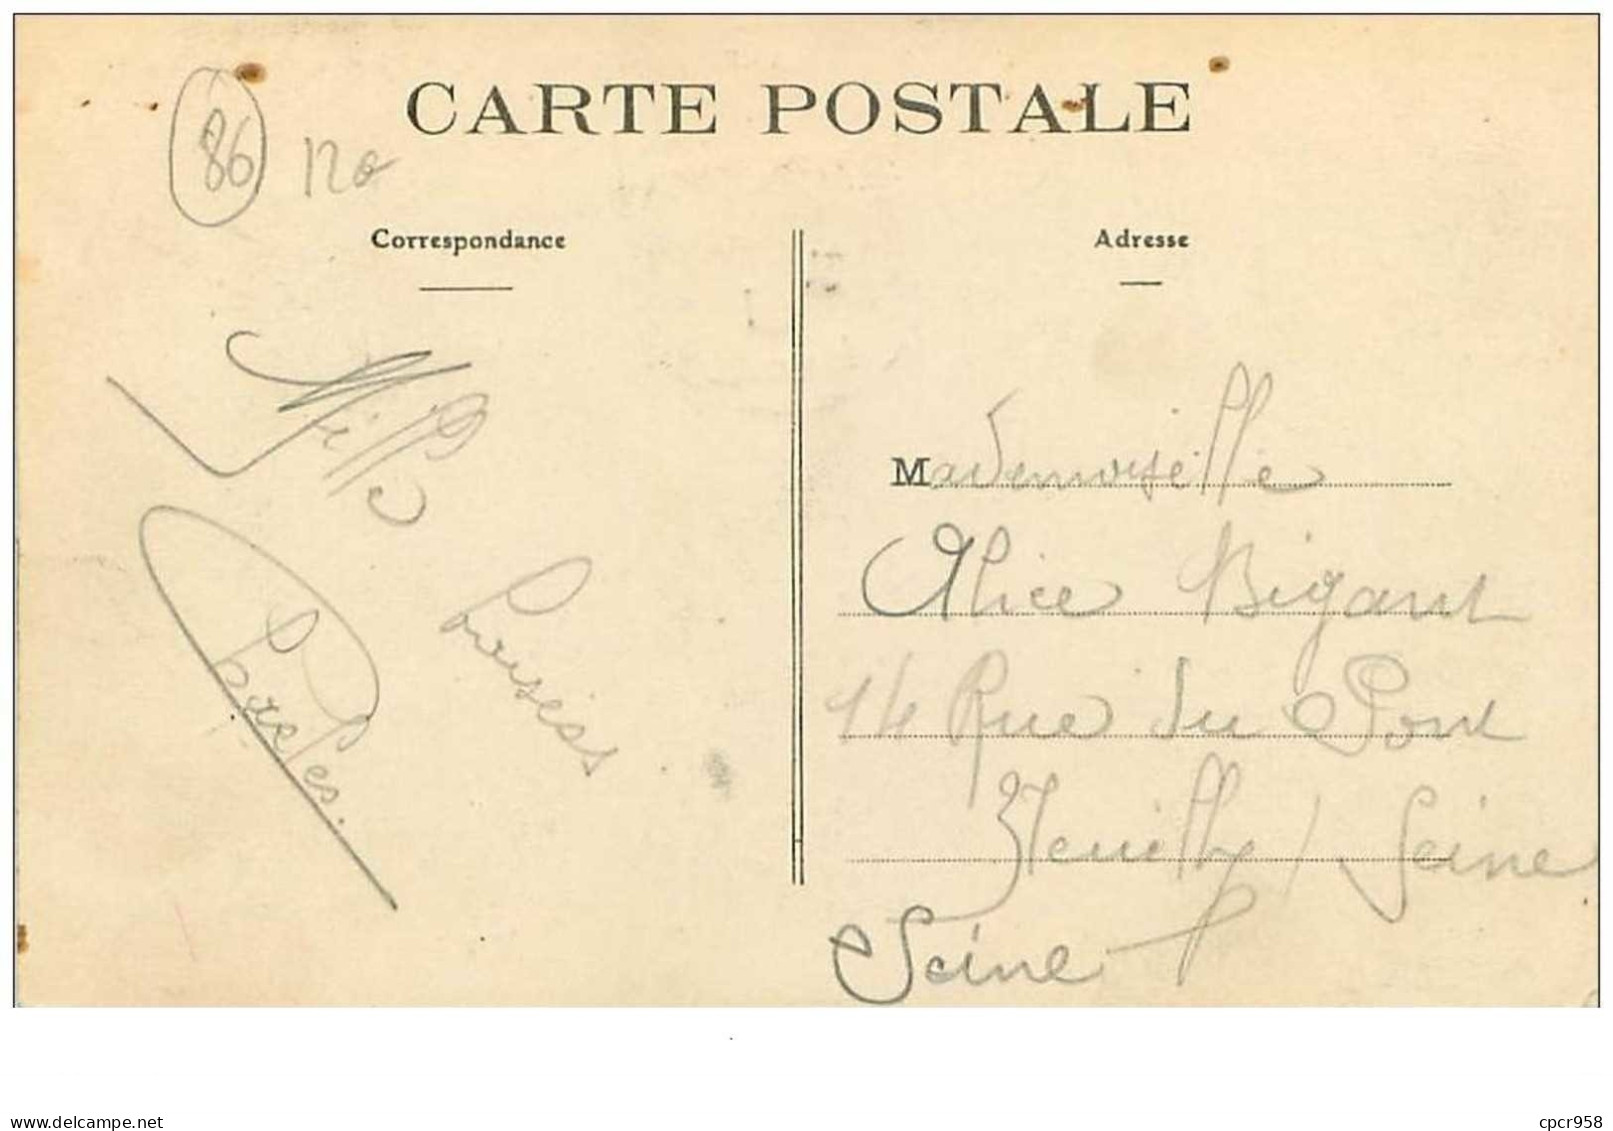 CARTE POSTALE
86
Correspondance
Adresse
Mille
Mademoiselle
Alice Bigant
14 Rue du Pont
Neuilly / Seine
Seine
www.delcampe.net
cpcr958